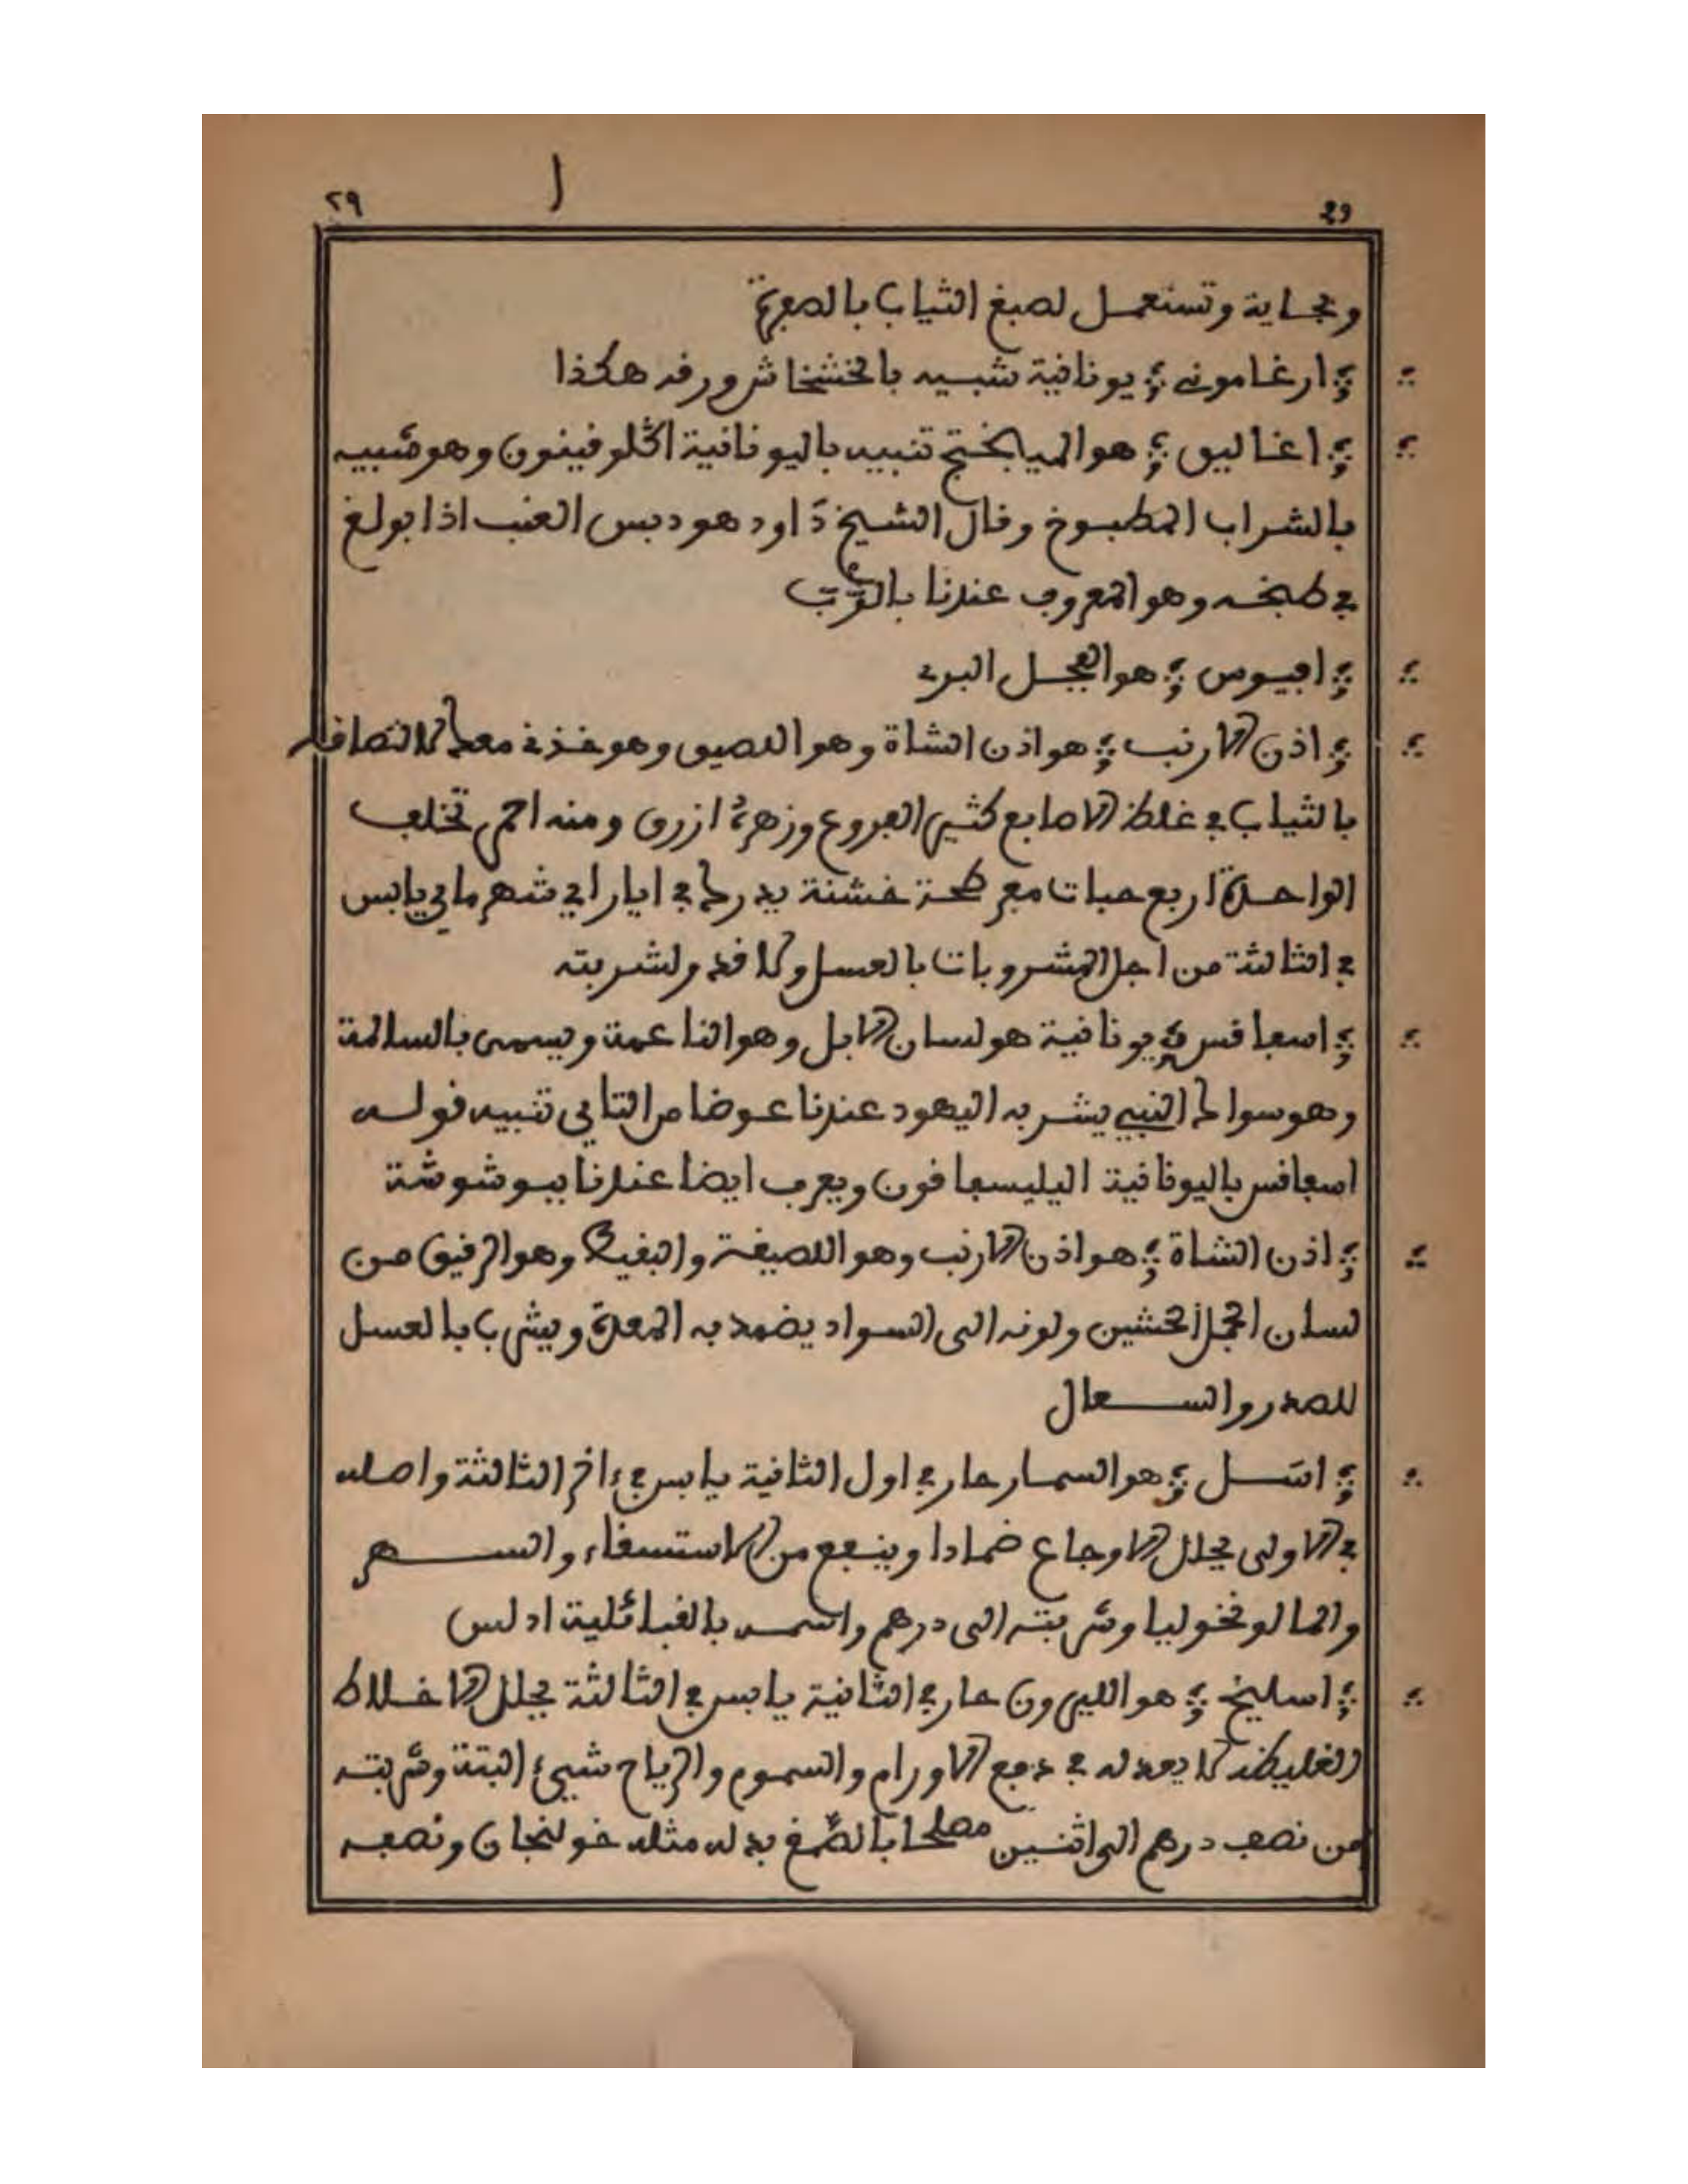 ٢٩
ا
29
وبجاية وتستعمل لصبغ الثياب بالصفرة
ارغاموني يونانية شبيه بالخشخاش ورقه هكذا
اغاليق هو الميابختج تنبيه باليونانية اڭلوفينون وهو شبيه
بالشراب المطبوخ وقال الشيخ داود هو دبس العنب اذا بولغ
في طبخه وهو المعروف عندنا بالرّب
افيوس هو الفجل البري
اذن الارنب هو اذن الشاة وهو اللصيق وهو خذني معك لالتصاقه
بالثياب في غلظ الاصابع كثير الفروع وزهره ازرق ومنه احمر تخلف
الواحدة اربع حبات مفرطحة خشنة يدرك في ايار اي شهر ماي يابس
في الثالثة من اجل المشروبات بالعسل ولا قدر لشربته
اسفاقس يونانية هو لسان الابل وهو الناعمة ويسمى بالسالمة
وهو سواك النبي يشربه اليهود عندنا عوضا من التاي تنبيه قوله
اسفاقس باليونانية اليليسفاقون ويعرف ايضا عندنا ببوشوشة
اذن الشاة هو اذن الارنب وهو اللصيقة وهو الرقيق من
لسان الحمل الخشين ولونه الى السواد يضمد به المعدة ويشرب بالعسل
للصدر والسعال
اسل هو السمار حار في اول الثانية يابس في ءاخر الثالثة واصله
في الاولى يحلل الاوجاع ضمادا وينفع من الاستسقاء والسهر
والمالونخوليا وشربته الى درهم واسمه بالقبائلية ادلس
اسليخ هو الليرون حار في الثانية يابس في الثالثة يحلل الاخلاط
الغليظة لا يعدله في دفع الاورام والسموم والرياح شيئ البتة وشربته
من نصف درهم الى اثنين مصلحا بالصمغ بدله مثله خولنجان ونصفه